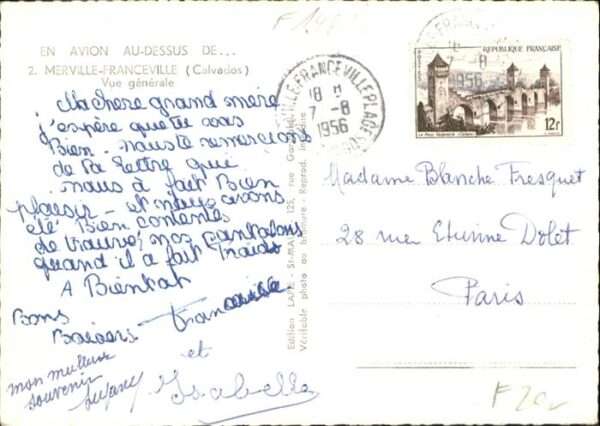 EN AVION AU-DESSUS DE...
2. MERVILLE-FRANCEVILLE (Calvados)
Vue générale
Ma chere grand mère
j'espère que tu vas
Bien. nous te remercions
de ta lettre qui
nous à fait Bien
plaisir - et nous avons
été Bien contentes
de trouver nos pantalons
quand il a fait froid
A Bientot
Bons
Baisers Francoise
et
Isabelle
mon meilleur
souvenir
MERVILLE-FRANCEVILLE PLAGE
18 H
7-8
1956
REPUBLIQUE FRANÇAISE
12F
Madame Blanche Fresquet
28 rue Etienne Dolet
Paris
Edition LAPIE - St-MAUR 125, rue
Véritable photo au bromure - Reprod. interdite